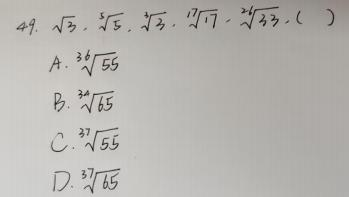 49. √3 . ⁵√5 . ³√3 . ¹⁷√17 . ²⁶√33 . ( )
A. ³⁶√55
B. ³⁴√65
C. ³⁷√55
D. ³⁷√65